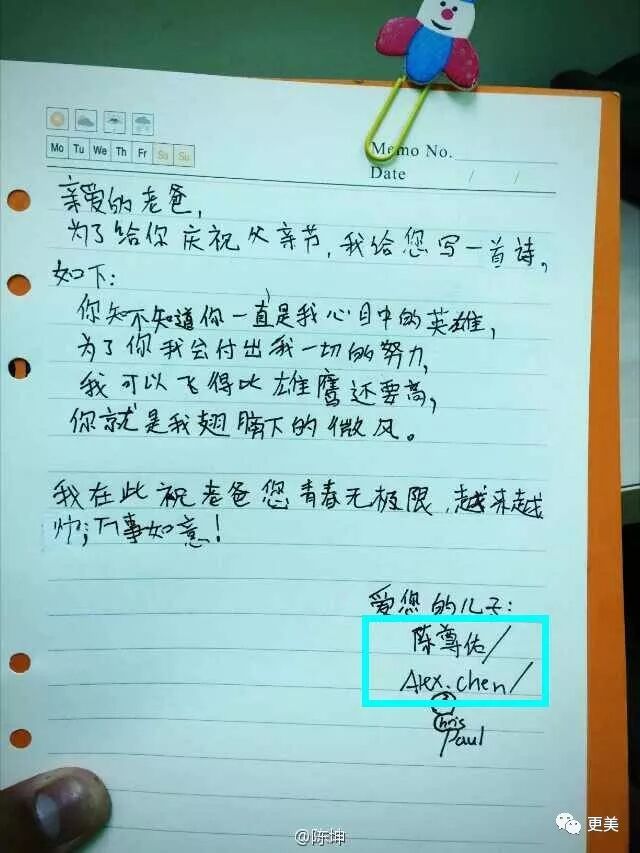 Memo No.
Mo Tu We Th Fr Sa Su
Date / /
亲爱的老爸,
为了给你庆祝父亲节,我给您写一首诗,
如下:
你知不知道你一直是我心目中的英雄,
为了你我会付出我一切的努力,
我可以飞得比雄鹰还要高,
你就是我翅膀下的微风。
我在此祝老爸您青春无极限,越来越
帅;万事如意!
爱您的儿子:
陈尊佑/
Alex.chen/
Chris
Paul
@陈坤
更美